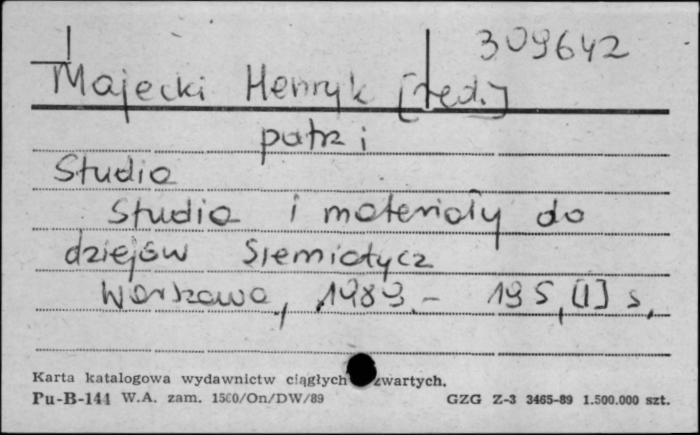 309642
Majecki Henryk [red.]
patrz
Studia
Studia i materiały do
dziejów Siemiatycz
Warszawa, 1989.- 195,[1] s.
Karta katalogowa wydawnictw ciągłych zwartych.
Pu-B-144 W.A. zam. 1560/On/DW/89 GZG Z-3 3465-89 1.500.000 szt.